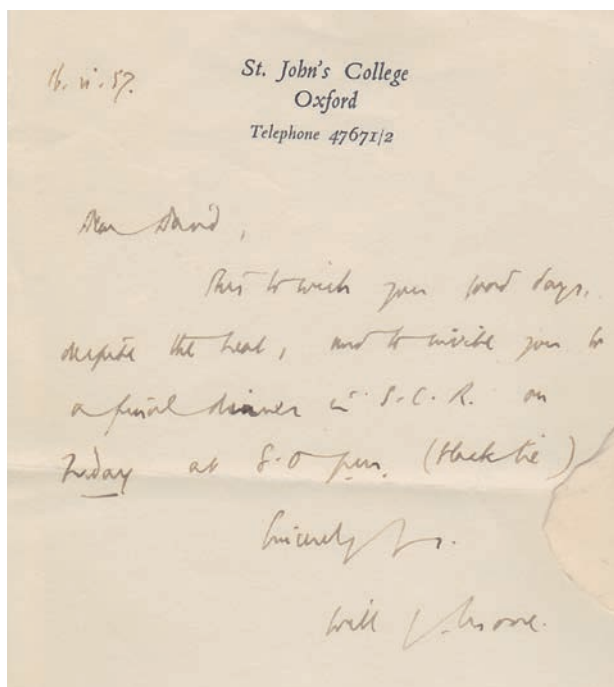 16. vi. 57.
St. John's College
Oxford
Telephone 47671/2
Dear David,
This to wish you good days,
despite the heat, and to invite you to
a final dinner in S.C.R. on
day at 8.0 pm. (black tie)
Sincerely yrs.
Will Moore.